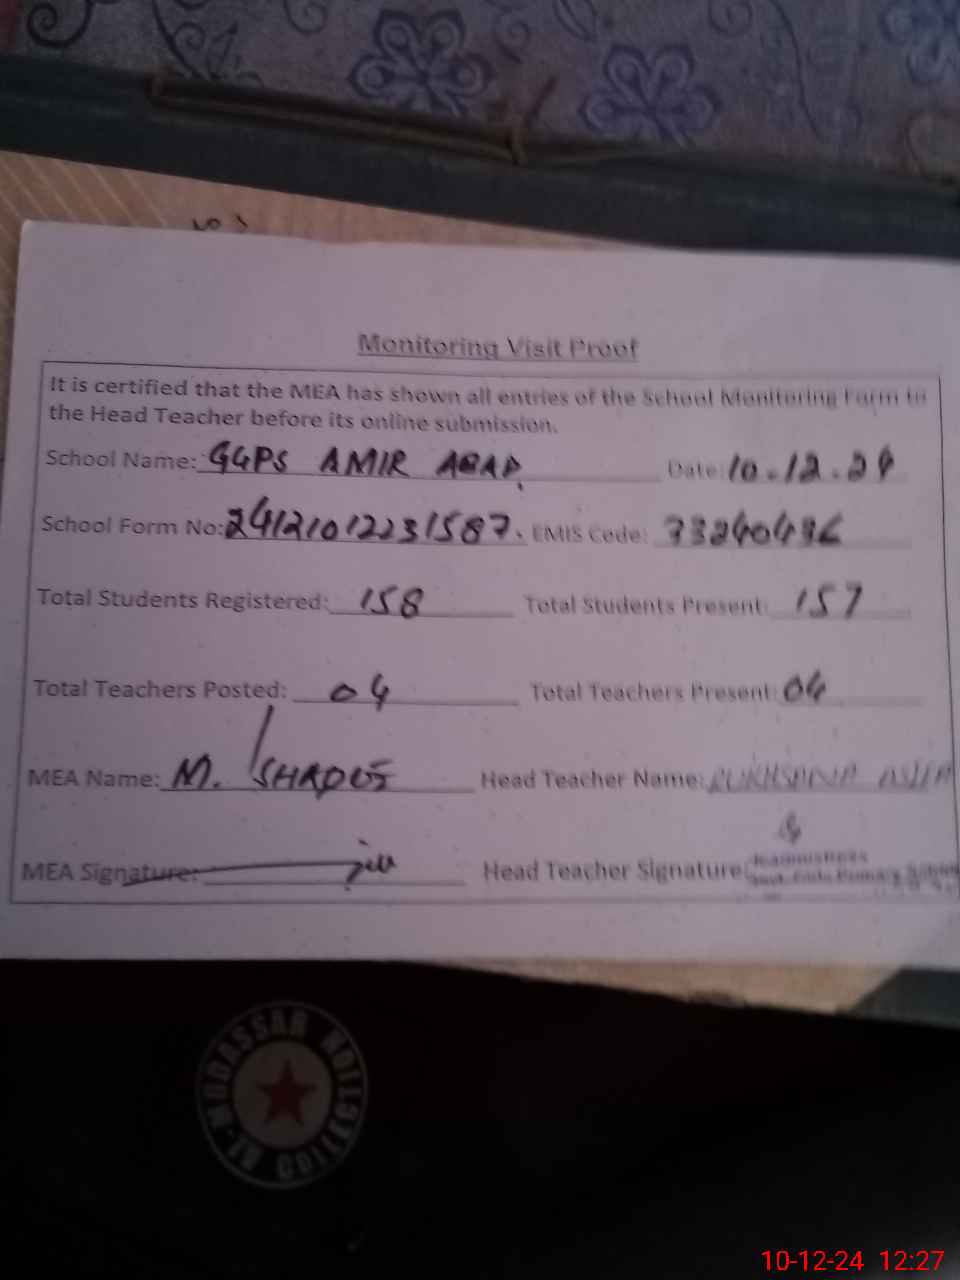 Monitoring Visit Proof
It is certified that the MEA has shown all entries of the School Monitoring Form to
the Head Teacher before its online submission.
School Name: GGPS AMIR ABAD Date: 10.12.24
School Form No: 24121012231587. EMIS Code: 33240436
Total Students Registered: 158 Total Students Present: 157
Total Teachers Posted: 04 Total Teachers Present: 04
MEA Name: M. Head Teacher Name: RUKHSANA
MEA Signature: Head Teacher Signature:
Headmistress
Govt. Girls Primary School
10-12-24 12:27